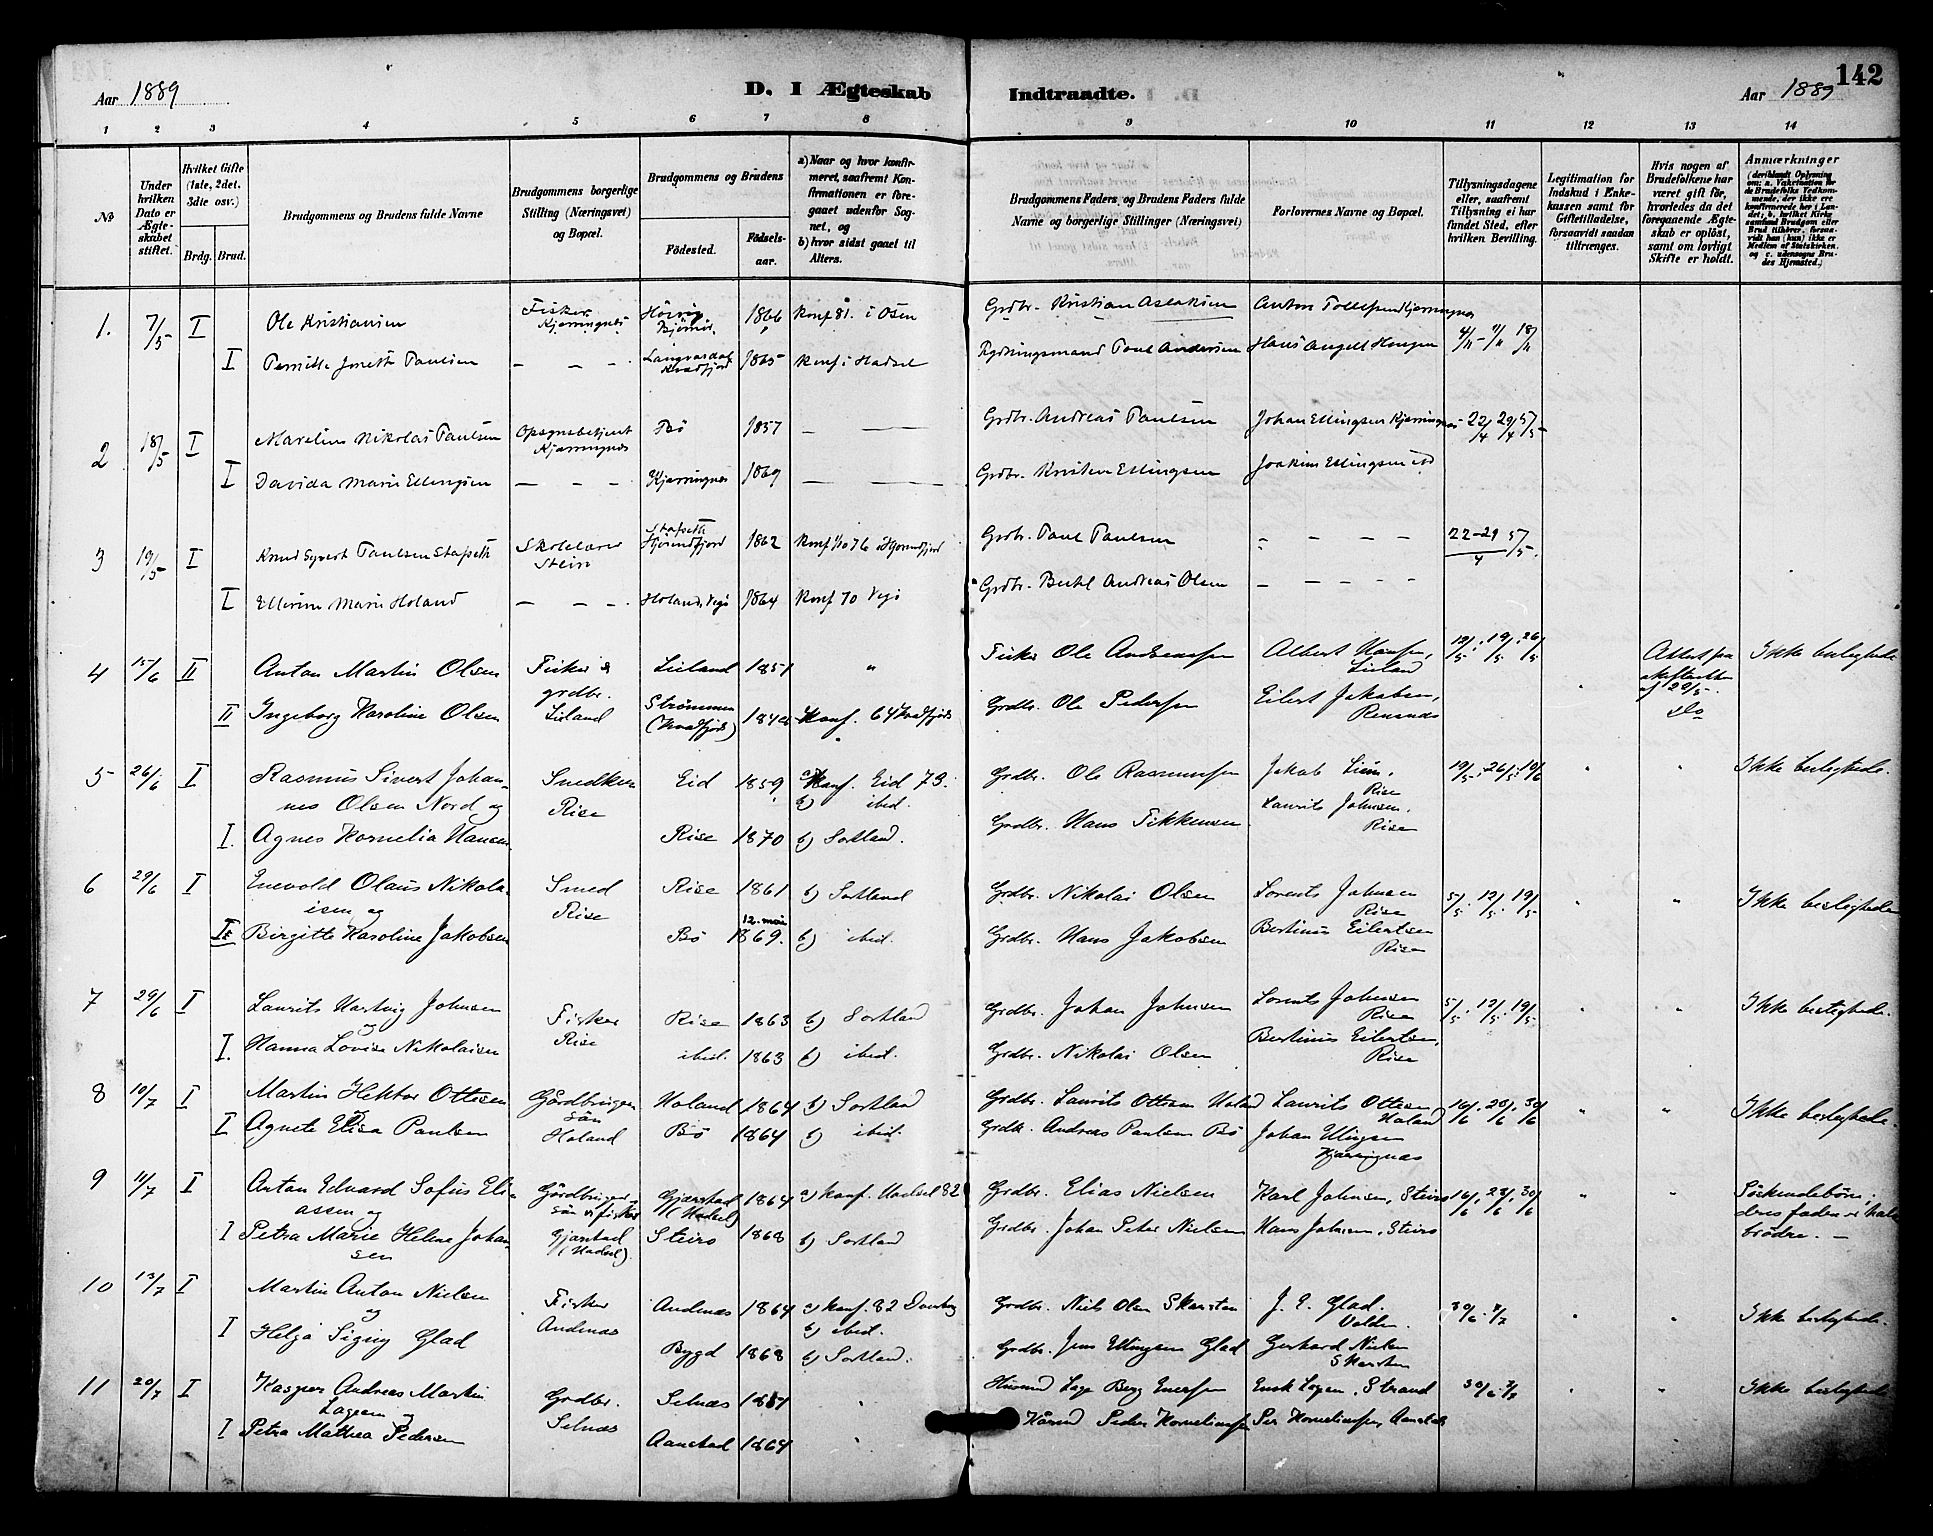 142
Aar 1889
D. I Ægteskab Indtraadte.
Aar 1889
1 2 3 4 5 6 7 8 9 10 11 12 13 14
№
Under hvilken Dato er Ægteskabet stiftet.
Hvilket Gifte (1ste, 2det, 3die osv.)
Brdg. Brud.
Brudgommens og Brudens fulde Navne
Brudgommens borgerlige Stilling (Næringsvei) og Bopæl.
Brudgommens og Brudens
Födested.
Födselsaar.
a) Naar og hvor konfirmeret, saafremt Konfirmationen er foregaaet udenfor Sognet, og
b) hvor sidst gaaet til Alters.
Brudgommens Faders og Brudens Faders fulde Navne og borgerlige Stillinger (Næringsvei)
Forlovernes Navne og Bopæl.
Tillysningsdagene eller, saafremt Tillysning ei har fundet Sted, efter hvilken Bevilling.
Legitimation for Indskud i Enkekassen samt for Giftetilladelse, forsaavidt saadan tiltrænges.
Hvis nogen af Brudefolkene har været gift för, hvorledes da det foregaaende Ægteskab er oplöst, samt om lovligt Skifte er holdt.
Anmærkninger
1. 7/5 I Ole Kristiansen Fisker Kjerringnes 1866 Konf 81. i Osen Grdbr. Kristian Aslaksen Anton Tollefsen Kjerringnes
I Pernille Paulsen – – – Langvasdal Kvæfjord 1865 Konf. i Hadsel Rydningsmand Poul Andersen Hans Angell Haugen
2 18/5 I Marelius Nikolai Paulsen Opsynsbetjent Kjerringnes Bö 1857 – – Grdbr. Andreas Paulsen Johan Ellingsen Kjerringnes 22/4 29/4 5/5
I Davida Marie Ellingsen – – – Kjerringnes 1869 – – Grdbr. Kristen Ellingsen Joakim Ellingsen
3 19/5 I Knud Syvert Paulsen Stafseth Skolelærer Steiro Stafseth Hjörundfjord 1862 Grdbr. Paul Paulsen – – – – 22–29/4 5/5.
I Ellerine Marie Holand – – – Holand 1864 Konf 70 Grdbr. Bertel Andreas Olsen – – – –
4 15/6 II Anton Martin Olsen Fisker & grdbr. Liland Liland 1851 " Fisker Ole Andreassen Albert Hansen, Liland 12/5. 19/5. 26/5 Ikke beslægtede
II Ingeborg Karoline Olsen Strömmen (Kvæfjord) Konf. 64 Kvæfjord Grdbr. Ole Pedersen Eilert Jakobsen, Rensnæs do
5 26/6 I Rasmus Sivert Johannes Olsen Nord og Snedker Rise Eid 1859 a) Konf. Eid 73. b) ibid. Grdbr. Ole Rasmussen Jakob Lian, Rise 19/5. 26/5. 10/6 Ikke beslægtede.
I. Agnes Kornelia Hansen Rise 1870 b) Sortland. Grdbr. Hans Fikkensen Laurits Johnsen, Rise
6 29/6 I Enevold Olaus Nikolaisen og Smed Rise Rise 1861 b) Sortland Grdbr. Nikolai Olsen Lorents Johnsen Rise 5/5. 12/5. 19/5 Ikke beslægtede
Birgitte Karoline Jakobsen Bö 12. mai 1869. b) ibid. Grdbr. Hans Jakobsen Bertinus Eilertsen Rise
7 29/6 I Laurits Hartvig Johnsen og Fisker Rise Rise 1863 b) Sortland Grdbr. Johan Johnsen Lorents Johnsen Rise 5/5. 12/5. 19/5 Ikke beslægtede.
I. Hanna Lovise Nikolaisen ibid. 1863 b) ibid. Grdbr. Nikolai Olsen Bertinus Eilertsen, Rise
8 10/7 I Martin Hektor Ottesen Gårdbrugersön Holand Holand 1864 b) Sortland Grdbr. Laurits Ottesen Holand Laurits Ottesen Holand 16/6. 23/6. 30/6 Ikke beslægtede.
I Agnete Elisa Paulsen Bö 1864 b) ibid. Grdbr. Andreas Paulsen Bö Johan Ellingsen Kjærringnæs
9 11/7 I Anton Edvard Sofus Eliassen og Gårdbrugersön & fisker Gjærstad (Hadsel). Gjærstad (Hadsel) 1864 a) konf. Hadsel 82 Grdbr. Elias Nielsen Karl Johnsen, Steiro 16/6. 23/6. 30/6 Söskendebörn; deres fædre er halvbrödre. –
I Petra Marie Helene Johansen Steiro 1868 b) Sortland Grdbr. Johan Peter Nielsen Hans Johnsen, Steiro
10 13/7 I Martin Anton Nielsen og Fisker Andenæs Andenæs 1864 a) konf. 82 b) ibid. Grdbr. Niels Olsen Skarsten J. E. Glad. Valden. 30/6. 7/7 Ikke beslægtede.
I Helga Signy Glad Bygd 1868 b) Sortland. Grdbr. Jens Ellingsen Glad Gerhard Nielsen Skarsten
11 20/7 I Kasper Andreas Martin Lagesen og Grdbr. Selnæs Selnæs Husmd Lage Berg Enersen 30/6. 7/7 Ikke beslægtede
I Petra Mathea Pedersen Aanstad 1864 Peder Korneliussen Per Korneliussen, Aanstad